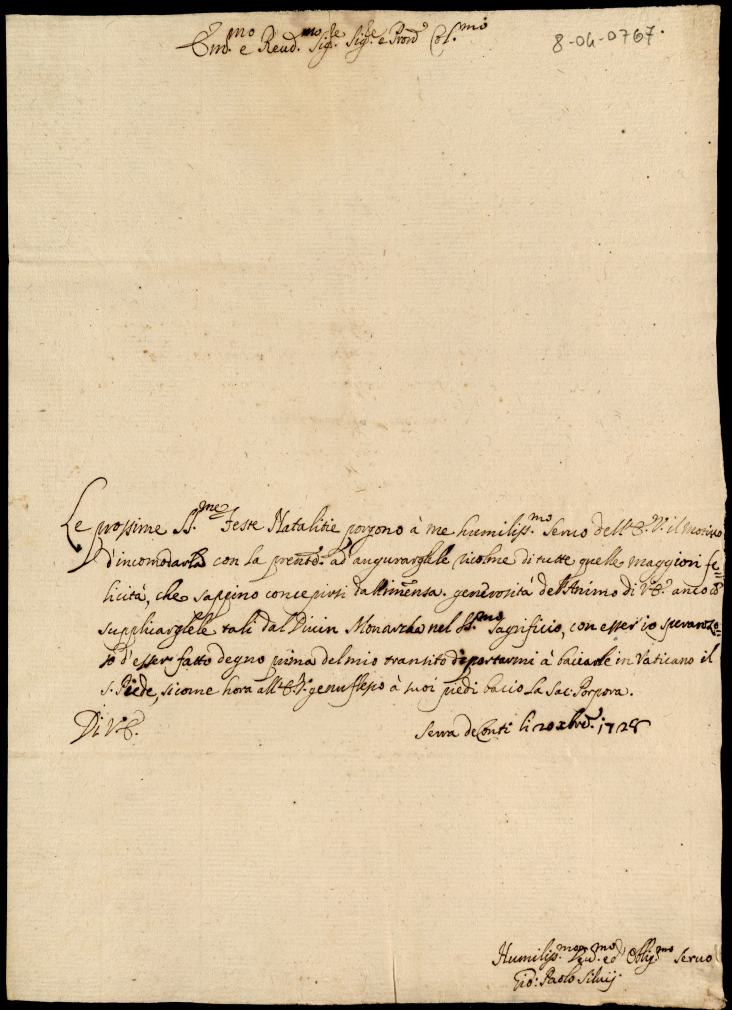 Em.mo e Reud.mo Sig.re Sig.re e Pron.e Col.mo
8-04-0767.
Le prossime SS.me Feste Natalitie porgono à me humiliss.mo seruo dell'E. V. il motiuo
d'incomodarla con la prente. ad augurarglele ricolme di tutte quelle maggiori fe=
licità, che sappino concepirsi dall'immensa generosità dell'Animo di V. E. anco co'
supplicarglele tali dal Diuin Monarcha nel SS.mo sagrificio, con esser io speranzo=
so d'esser fatto degno prima del mio transito di portarmi à baciarle in Vaticano il
s. Piede, sicome hora all'E. V. genuflesso à suoi piedi bacio la Sac. Porpora.
Di V. E.
Serra de Conti li 20 xbre. 1728
Humiliss.mo Deu.mo ed Oblig.mo Seruo
Gio: Paolo Siluij